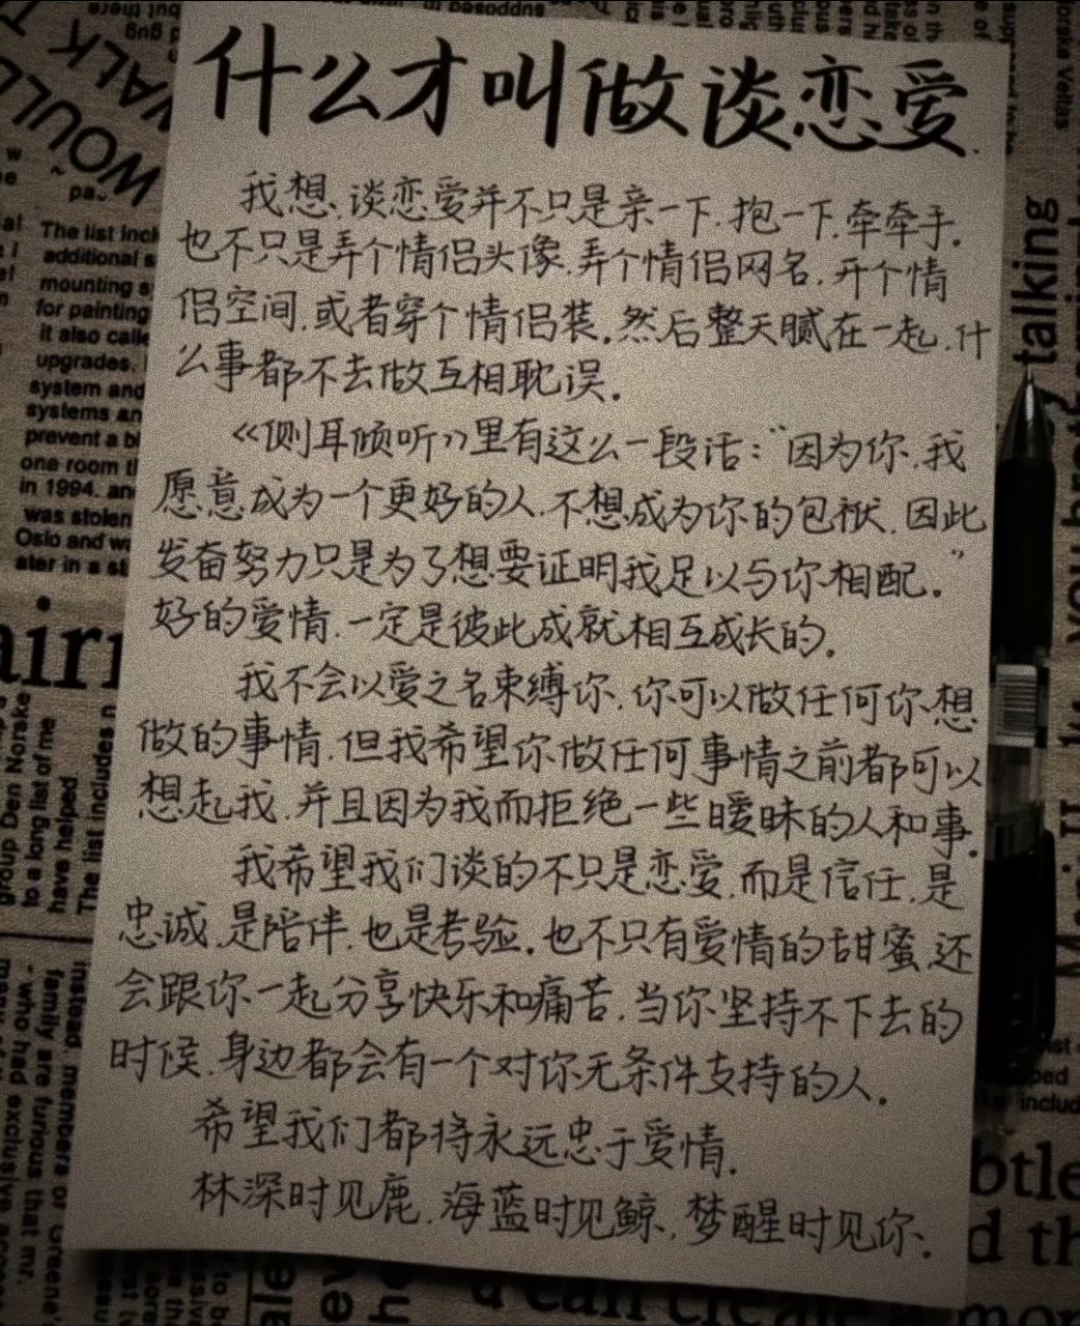 什么才叫做谈恋爱
我想.谈恋爱并不只是亲一下.抱一下.牵牵手.
也不只是弄个情侣头像.弄个情侣网名.开个情
侣空间.或者穿个情侣装.然后整天腻在一起.什
么事都不去做互相耽误.
《侧耳倾听》里有这么一段话:“因为你.我
愿意成为一个更好的人.不想成为你的包袱.因此
发奋努力只是为了想要证明我足以与你相配.”
好的爱情.一定是彼此成就相互成长的.
我不会以爱之名束缚你.你可以做任何你想
做的事情.但我希望你做任何事情之前都可以
想起我.并且因为我而拒绝一些暧昧的人和事.
我希望我们谈的不只是恋爱.而是信任.是
忠诚.是陪伴.也是考验.也不只有爱情的甜蜜.还
会跟你一起分享快乐和痛苦.当你坚持不下去的
时候.身边都会有一个对你无条件支持的人.
希望我们都将永远忠于爱情.
林深时见鹿.海蓝时见鲸.梦醒时见你.
WOULD
WALK
The list incl
additional s
mounting s
for painting
it also calle
upgrades.
system and
systems an
prevent a bl
one room th
in 1994. an
was stolen
Oslo and wa
ater in a st
group Den Norske
to a long list of me
have helped
The list includes n
talking
btle
d th